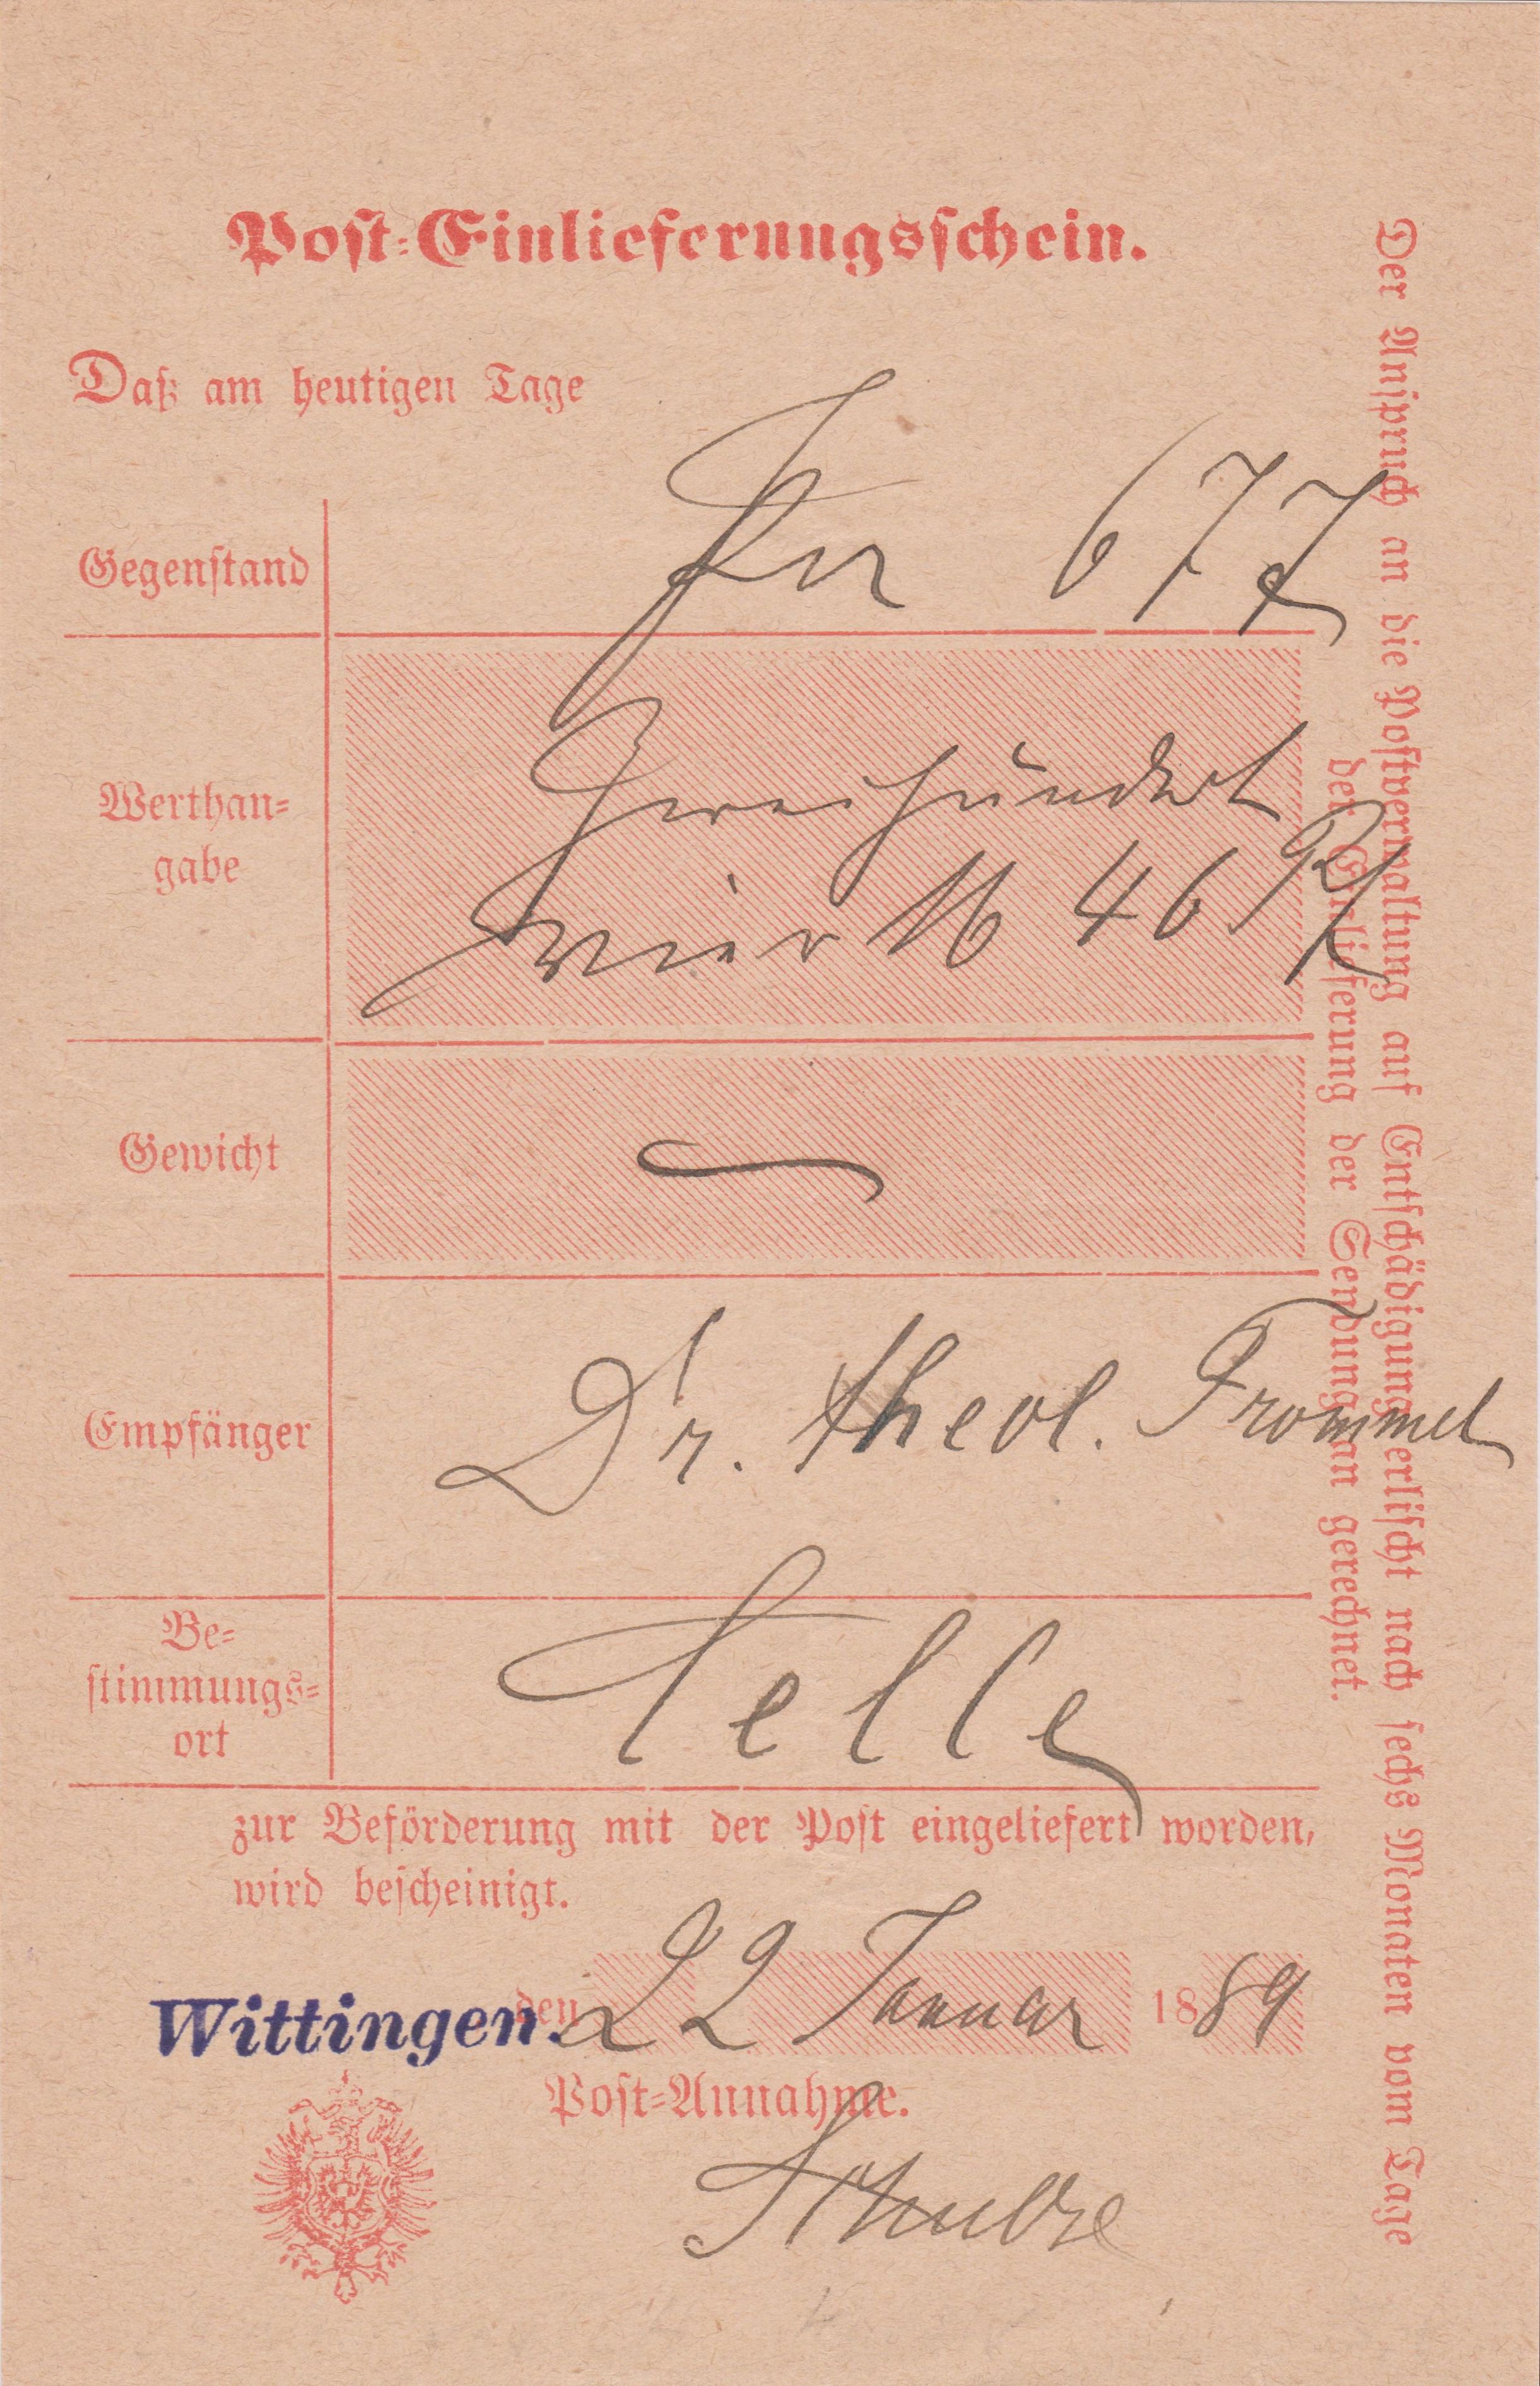 Post-Einlieferungsschein.
Daß am heutigen Tage
Gegenstand
677
Werthan-
gabe
Zweihundert
vier M 46 Pf
Gewicht
Empfänger
Dr. theol. Frommel
Be-
stimmungs-
ort
Celle
zur Beförderung mit der Post eingeliefert worden,
wird bescheinigt.
Wittingen. den 22 Januar 1889
Post-Annahme.
Schulze
Der Anspruch an die Postverwaltung auf Entschädigung erlischt nach sechs Monaten vom Tage
der Einlieferung der Sendung an gerechnet.